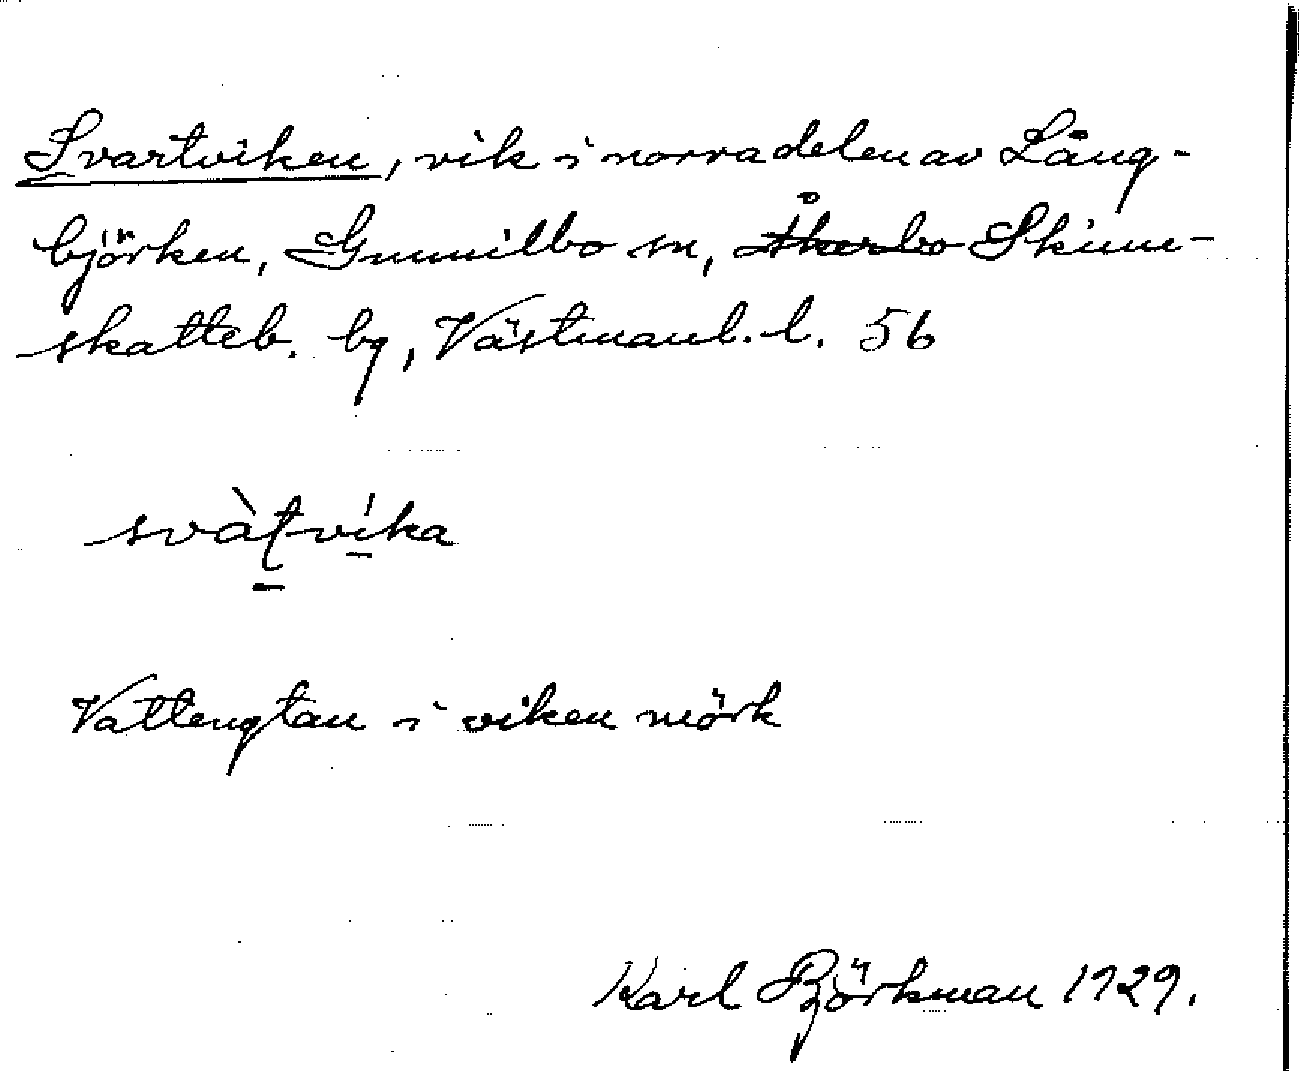 Svartviken, vik i norra delen av Lång-
björken, Gunnilbo sn, Åkerbo Skinn-
skatteb. bg, Västmanl. l. 56
svàt̠ví̠ka
Vattenytan i viken mörk
Karl Björkman 1929.